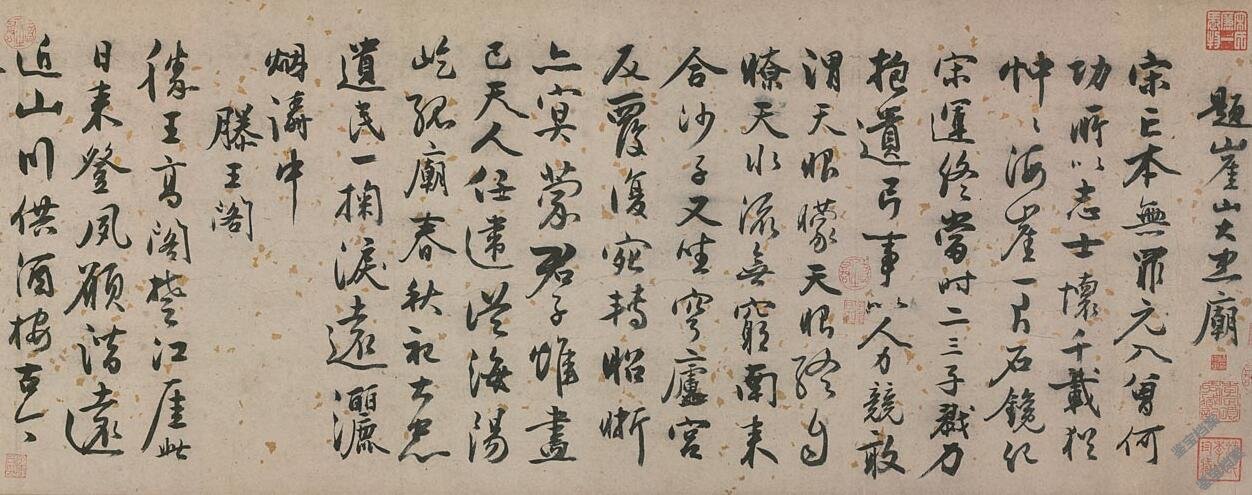 題崖山大忠廟
宋亡本無罪元入曾何
功所以志士懷千載猶
忡〻海崖一片石鐫紀
宋運終當時二三子戮力
抱遺弓事以人力競敢
謂天眼矇天眼終自
瞭天水流無窮南来
合沙子又坐穹廬宮
反覆復宛轉昭晰
亦冥蒙君子惟盡
己天人任違從海湯
屹孤廟春秋祀大忠
遺民一掬淚遠灑
烟濤中
滕王閣
滕王高閣楚江厓此
日来登夙願諧遠
近山川供酒梅古今
鉴宝档案